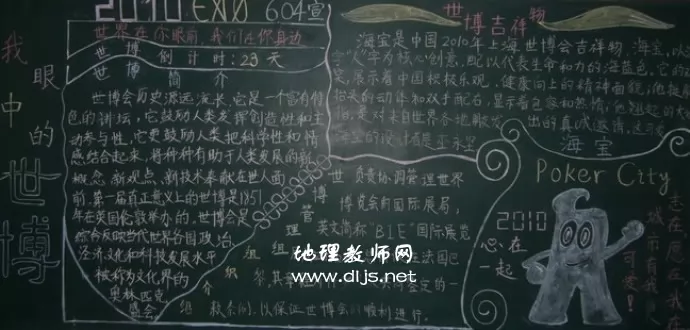 我眼中的世博
2010 EXPO 604宣
世界在你眼前,我们在你身边
世博倒计时:23天
世博简介
世博会历史源远流长,它是一个富有特
色的讲坛,它鼓励人类发挥创造性和主
动参与性,它更鼓励人类把科学性和情
感结合起来,将种种有助于人类发展的新
概念、新观点、新技术奉献在世人面
前。第一届真正意义上的世博是1851
年在英国伦敦举办的。世博会是
综合反映当代世界各国政治、
经济文化和科技发展水平
被称为文化界的
奥林匹克
盛会
世博吉祥物
海宝是中国2010年上海世博会吉祥物,海宝,以汉
字"人"字为核心创意,配以代表生命和活力的海蓝色。它的
展示着中国积极乐观、健康向上的精神面
抬头的动作和双手配合,显示着包容和热情
是对来自世界各地朋友
出的真诚邀请
海宝
世博管理组织
负责协调管理世界
博览会的国际展局,
英文简称"BIE"国际展览
在法国巴
条例,以保证世博会的顺利进行。
Poker City
2010
心在一起
城市有我
地理教师网
www.dljs.net